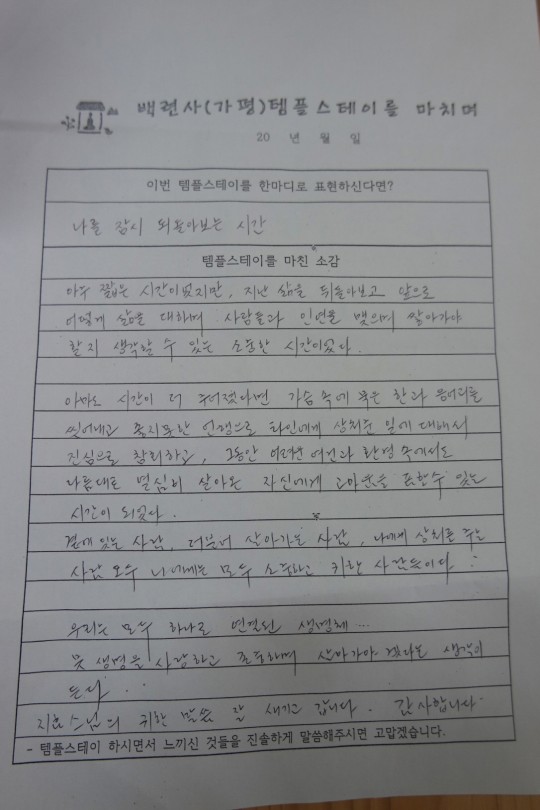 백련사(가평)템플스테이를 마치며
20 년 월 일
이번 템플스테이를 한마디로 표현하신다면?
나를 잠시 되돌아보는 시간
템플스테이를 마친 소감
아주 짧은 시간이었지만, 지난 삶을 뒤돌아보고 앞으로
어떻게 삶을 대하며 사람들과 인연을 맺으며 살아가야
할지 생각할 수 있는 소중한 시간이었다.
아마도 시간이 더 주어졌다면 가슴 속에 묵은 한과 응어리를
씻어내고 옳지못한 언행으로 타인에게 상처준 일에 대해서
진심으로 참회하고, 그동안 어려운 여건과 환경 속에서도
나름대로 열심히 살아온 자신에게 고마움을 표할수 있는
시간이 되었다.
곁에 있는 사람, 더불어 살아가는 사람, 나에게 상처를 주는
사람 모두 나에게는 모두 소중하고 귀한 사람들이다.
우리는 모두 하나로 연결된 생명체...
뭇 생명을 사랑하고 존중하며 살아가야 겠다는 생각이
든다..
스님의 귀한 말씀 잘 새기고 갑니다. 감사합니다
- 템플스테이 하시면서 느끼신 것들을 진솔하게 말씀해주시면 고맙겠습니다.